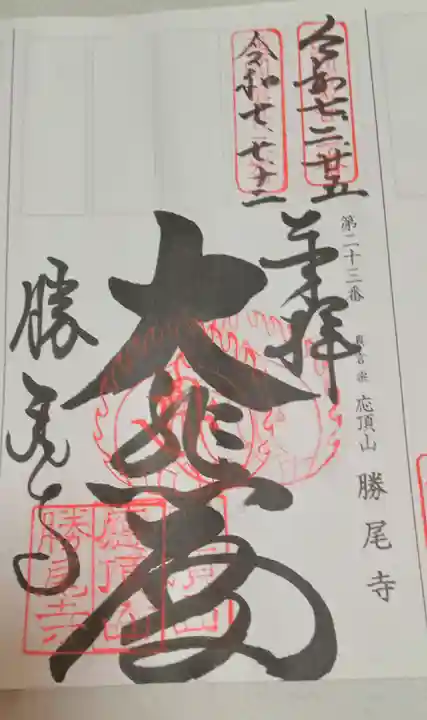 令和七、二、廿五
令和七、七、十二
第二十三番
真言宗
応頂山
勝尾寺
奉拝
大悲殿
勝尾寺
應頂山
勝尾寺